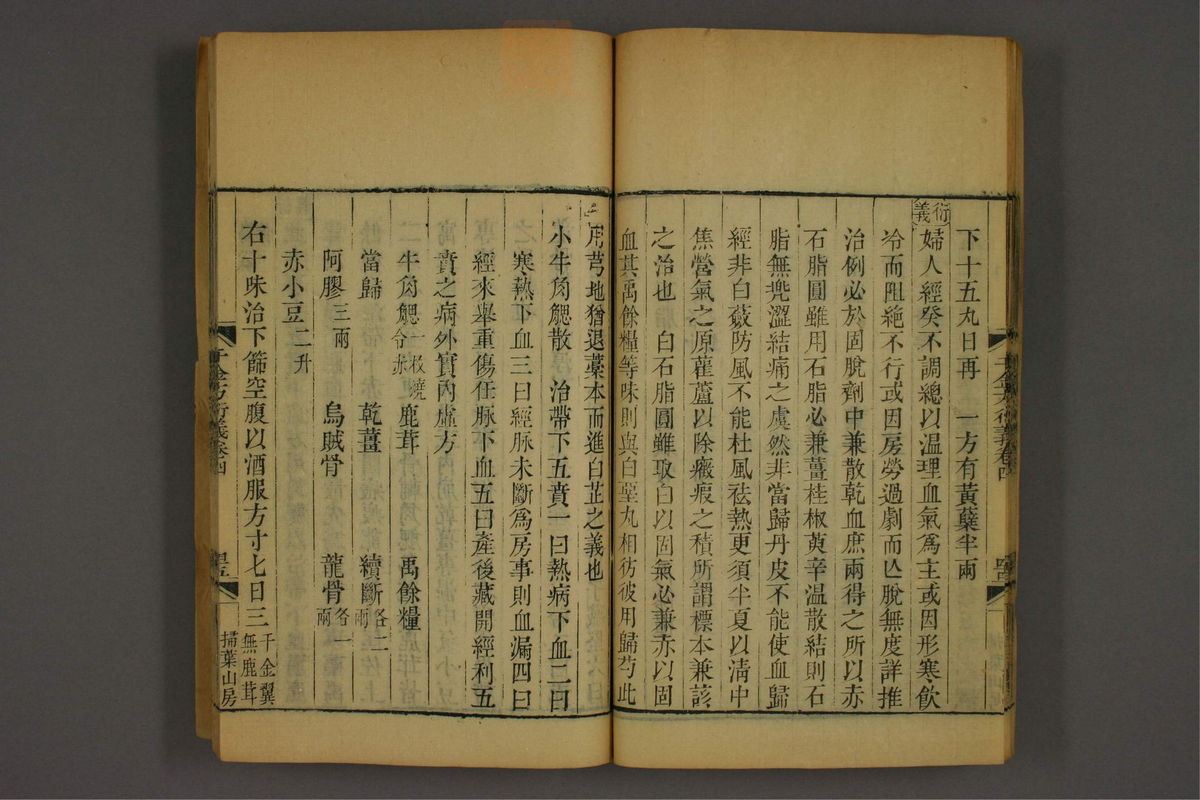 下十五丸日再　一方有黃蘗半兩
衍義
婦人經癸不調總以温理血氣爲主或因形寒飲
冷而阻絶不行或因房勞過劇而亾脫無度詳推
治例必於固脫劑中兼散乾血庶兩得之所以赤
石脂圓雖用石脂必兼薑桂椒萸辛温散結則石
脂無兠澀結痛之虞然非當歸丹皮不能使血歸
經非白蘞防風不能杜風祛熱更須半夏以淸中
焦營氣之原藋蘆以除癥瘕之積所謂標本兼該
之治也　白石脂圓雖取白以固氣必兼赤以固
血其禹餘糧等味則與白堊丸相彷彼用歸芍此
千金方衍義卷四
用芎地猶退藁本而進白芷之義也
小牛角䚡散　治帶下五賁一曰熱病下血二曰
寒熱下血三曰經脉未斷爲房事則血漏四曰
經來舉重傷任脉下血五曰產後藏開經利五
賁之病外實內虛方
牛角䚡一枚燒令赤　鹿茸　禹餘糧
當歸　乾薑　續斷各二兩
阿膠三兩　烏賊骨　龍骨各一兩
赤小豆二升
右十味治下篩空腹以酒服方寸七日三千金翼無鹿茸
千金方衍義卷四
掃葉山房